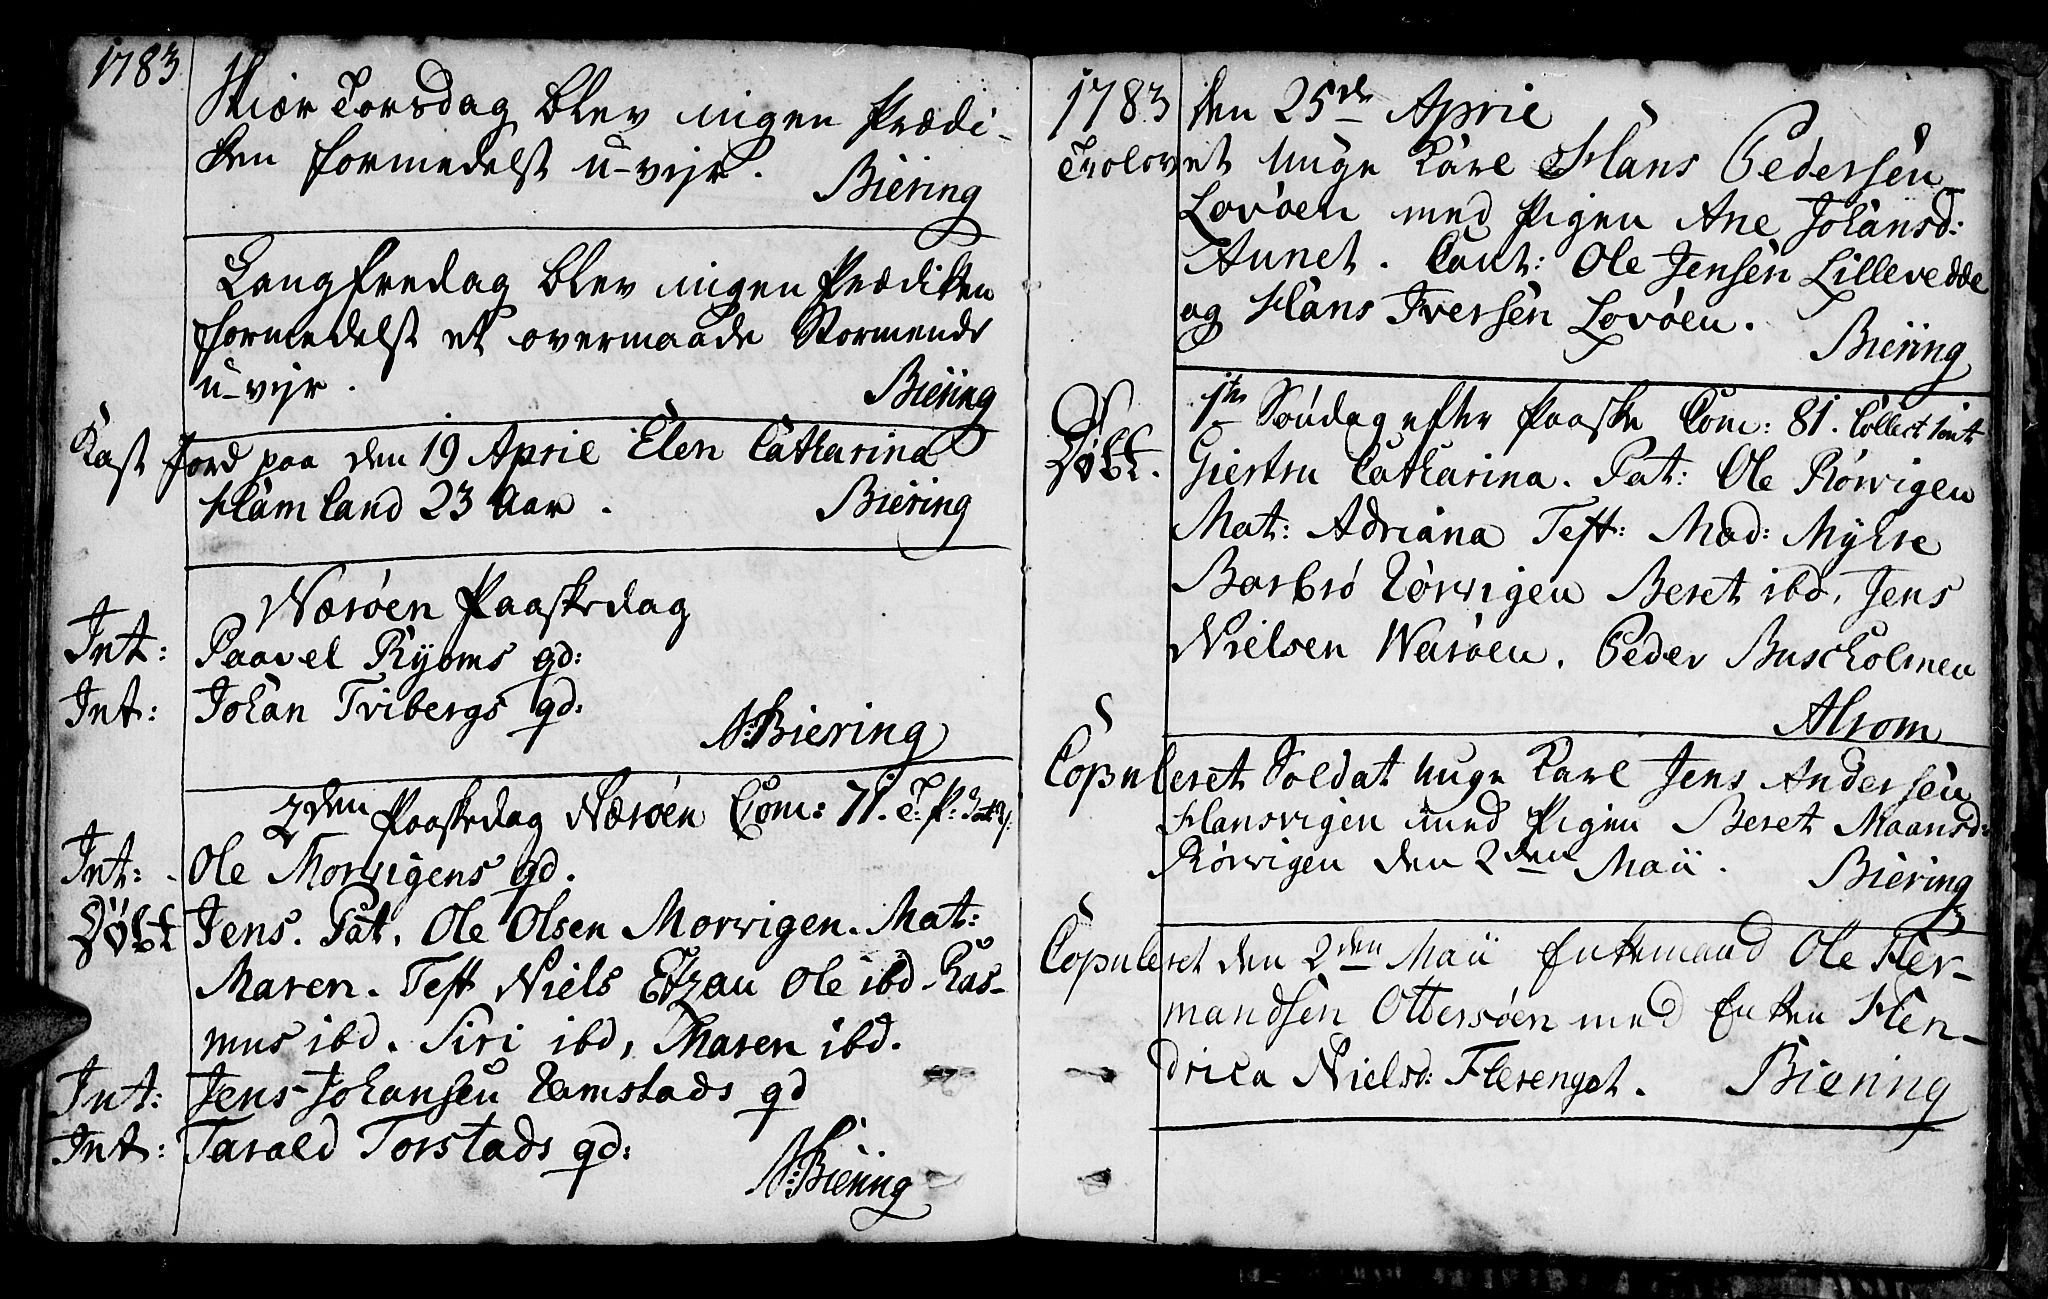 1783
Skiær Torsdag blev ingen Prædi-
ken formedelst u-vejr. Biering
Langfredag blev ingen Prædiken
formedelst et overmaade Stormende
u-vejr. Biering
Kast Jord paa den 19 April Elen Catharina
Hamland 23 Aar. Biering
Nærøen Paaskedag
Int: Paavel Ryoms qd:
Int: Johan Tvibergs qd:
N: Biering
2den Paaskedag Nærøen Com: 71. T: P:
Int: Ole Morvigens qd.
Døbt Jens. Pat. Ole Olsen Morvigen. Mat:
Maren. Test Niels Etzau Ole ibd. Ras-
mus ibd. Siri ibd, Maren ibd.
Int: Jens Johansen Ramstads qd
Int: Tarald Torstads qd:
N: Biering
1783 den 25de April
Trolovet unge Karl Hans Pedersen
Lovøen med Pigen Ane Johansd:
Aunet. Caut: Ole Jensen Lillevedde
og Hans Iversen Lovøen.
Biering
1te Søndag efter Paaske Com: 81. Collect
Døbt. Giertru Catharina. Pat: Ole Rørvigen
Mat: Adriana Test: Mad: Myhre
Barbro Rørvigen Beret ibd. Jens
Nielsen Nærøen. Peder Buscholmen
Alrom
Copuleret Soldat unge Karl Jens Andersen
Hansvigen med Pigen Beret Maansd:
Rørvigen den 2den Maii. Biering
Copuleret den 2den Maii Enkemand Ole Her-
mandsen Ottersøen med Enken Hen-
drica Nielsd: Flerenget. Biering